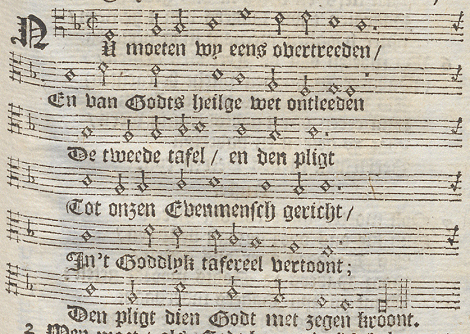 NU moeten wy eens overtreeden/
En van Godts heilge wet ontleeden
De tweede tafel/ en den pligt
Tot onzen Evenmensch gericht/
In't Goddlyk tafereel vertoont;
Den pligt dien Godt met zegen kroont.
2